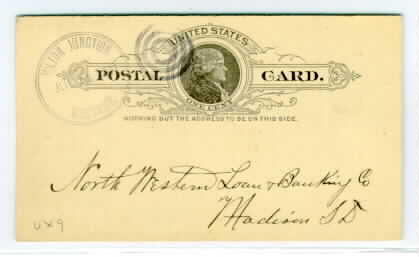 UNITED STATES
POSTAL CARD.
ONE CENT
NOTHING BUT THE ADDRESS TO BE ON THIS SIDE.
JUNCTION
North Western Loan & Banking Co
Madison S D
UX9